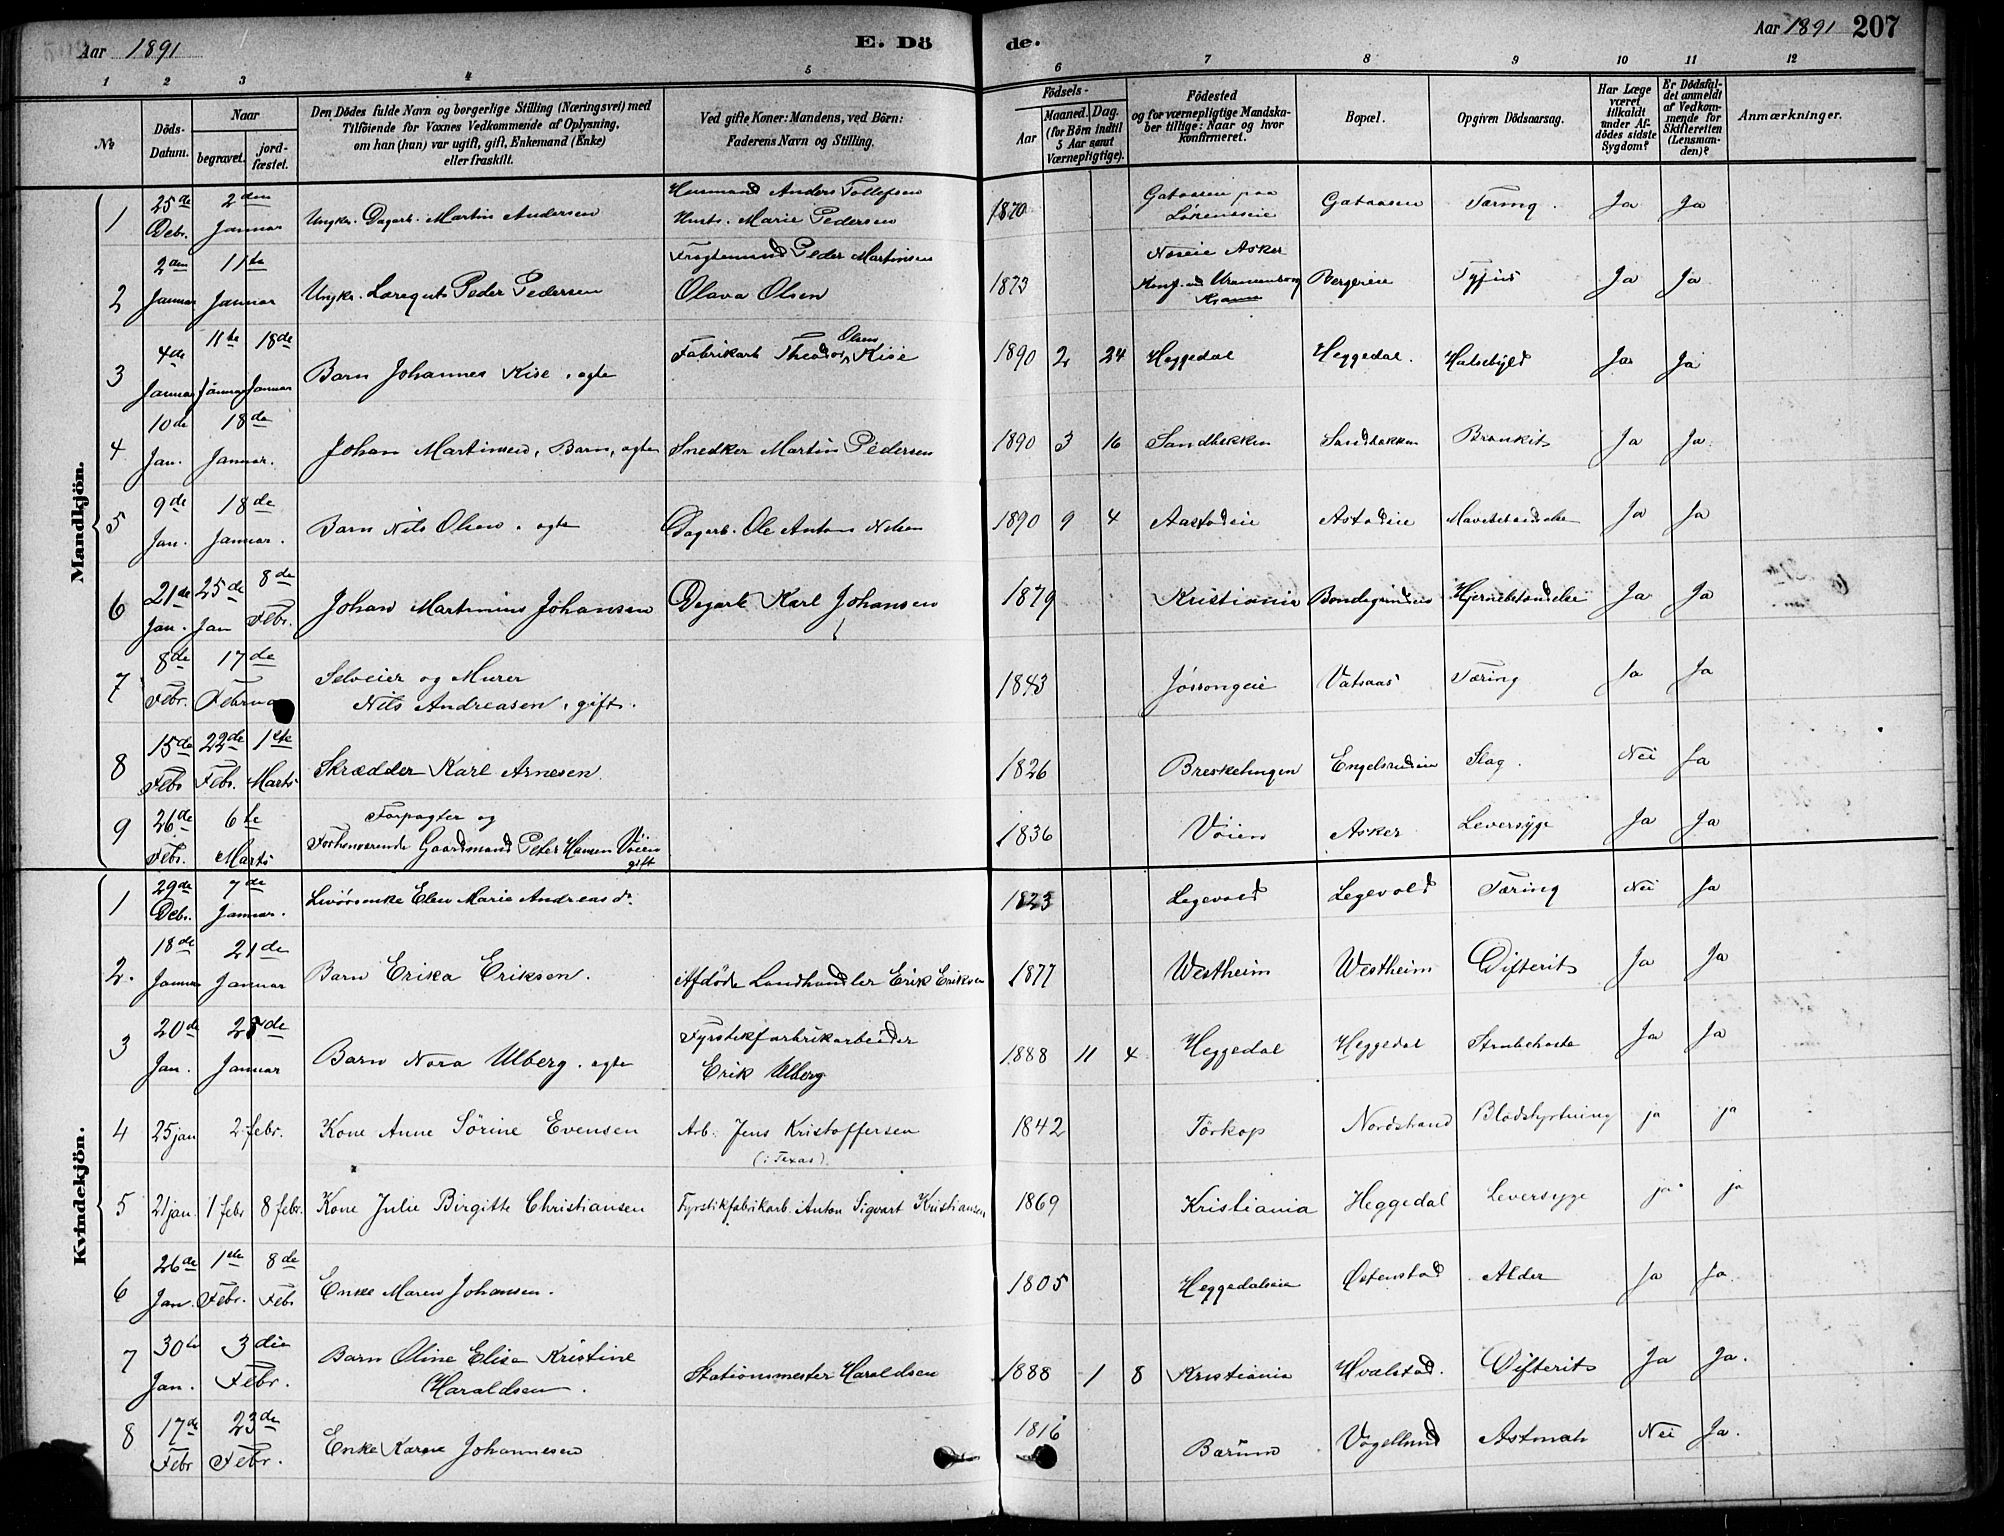 Aar 1891
E. Dö
de.
Aar 1891 207
1 2 3 4 5 6 7 8 9 10 11 12
№
Döds-Datum.
Naar
begravet.
jord-fæstet.
Den Dödes fulde Navn og borgerlige Stilling (Næringsvei) med
Tilföiende for Voxnes Vedkommende af Oplysning,
om han (hun) var ugift, gift, Enkemand (Enke)
eller fraskilt.
Ved gifte Koner: Mandens, ved Börn:
Faderens Navn og Stilling.
Födsels-
Aar
Maaned. Dag.
(for Börn indtil
5 Aar samt
Værnepligtige).
Födested
og for værnepligtige Mandska-
ber tillige: Naar og hvor
konfirmeret.
Bopæl.
Opgiven Dödsaarsag.
Har Læge
været
tilkaldt
under Af-
dödes sidste
Sygdom?
Er Dödsfal-
det anmeldt
af Vedkom-
mende for
Skifteretten
(Lensman-
den)?
Anmærkninger.
Mandkjön.
1 25de Debr. 2den Januar Ungkr. Dagarb. Martin Andersen Husmand Anders Tollefsen
Hust. Marie Pedersen 1870 Gataasen paa
Løkenseie Gataasen Tæring. Ja Ja
2 2den Januar 11te Januar Ungkr. Læregut Peder Pedersen Peder Martinsen
Olava Olsen 1873 Næseie Asker
Konf. Uranienborg Bergereie Tyfus Ja Ja
3 4de Januar 11te Januar 18de Januar Barn Johannes Kise, ægte Fabrikarb. Theodor Olsen Kise 1890 2 24 Heggedal Heggedal. Halsebyld Ja Ja
4 10de Jan. 18de Januar. Johan Martinsen, Barn, ægte Snedker Martin Pedersen 1890 3 16 Sandbakken Sandbakken Bronkit Ja Ja
5 9de Jan. 18de Januar. Barn Nils Olsen, ægte Dagarb. Ole Anton Nilsen 1890 9 4 Aastadeie Astadeie Mavebetændelse Ja Ja
6 21de Jan. 25de Jan 8de Febr. Johan Martinius Johansen Dagarb Karl Johansen 1879 Kristiania Hjernebetændelse Ja Ja
7 8de Febr. 17de Februar Selveier og Murer
Nils Andreasen, gift. 1843 Jørrongeie Vatsaas Tæring Ja Ja
8 15de Febr 22de Febr. 1ste Marts Skrædder Karl Arnesen. 1826 Breskelingen Engelsrudeie Slag. Nei Ja
9 26de Febr. 6te Marts Forpagter og
Forhenværende Gaardmand Peter Hansen Vöien
gift 1836 Vöien Asker Leversyge Ja Ja
Kvindekjön.
1 29de Debr. 7de Januar. Elen Marie Andreasd. 1823 Legevold Legevold Tæring Nei Ja
2. 18de Januar 21de Januar Barn Erika Eriksen. Afdöde Landhandler Erik Eriksen 1877 Westheim Westheim Difterit Ja Ja
3 20de Jan. 25de Januar Barn Nora Ulberg. ægte Fyrstikfabrikarbeider
Erik Ulberg 1888 11 4 Heggedal Heggedal Strubehoste Ja Ja
4 25 jan 2. febr. Kone Anne Sörine Evensen Arb. Jens Kristoffersen
(i Texas). 1842 Törkop Nordstrand Blodstyrtning ja ja
5 21 jan. 1 febr 8 febr. Kone Julie Birgitte Christiansen Fyrstikfabrikarb. Anton Sigvart Kristiansen 1869 Kristiania Heggedal Leversyge ja ja
6 26de Jan. 1ste Febr. 8de Febr Enke Maren Johansen. 1805 Heggedalseie Østenstad Alder Ja Ja
7 30te Jan. 3die Febr. Barn Oline Elise Kristine
Haraldsen. Stationsmester Haraldsen 1888 1 8 Kristiania Hvalstad. Difterit Ja Ja.
8 17de Febr 23de Febr. Enke Karen Johannesen 1816 Bærum Vogellund Astmah Nei Ja.